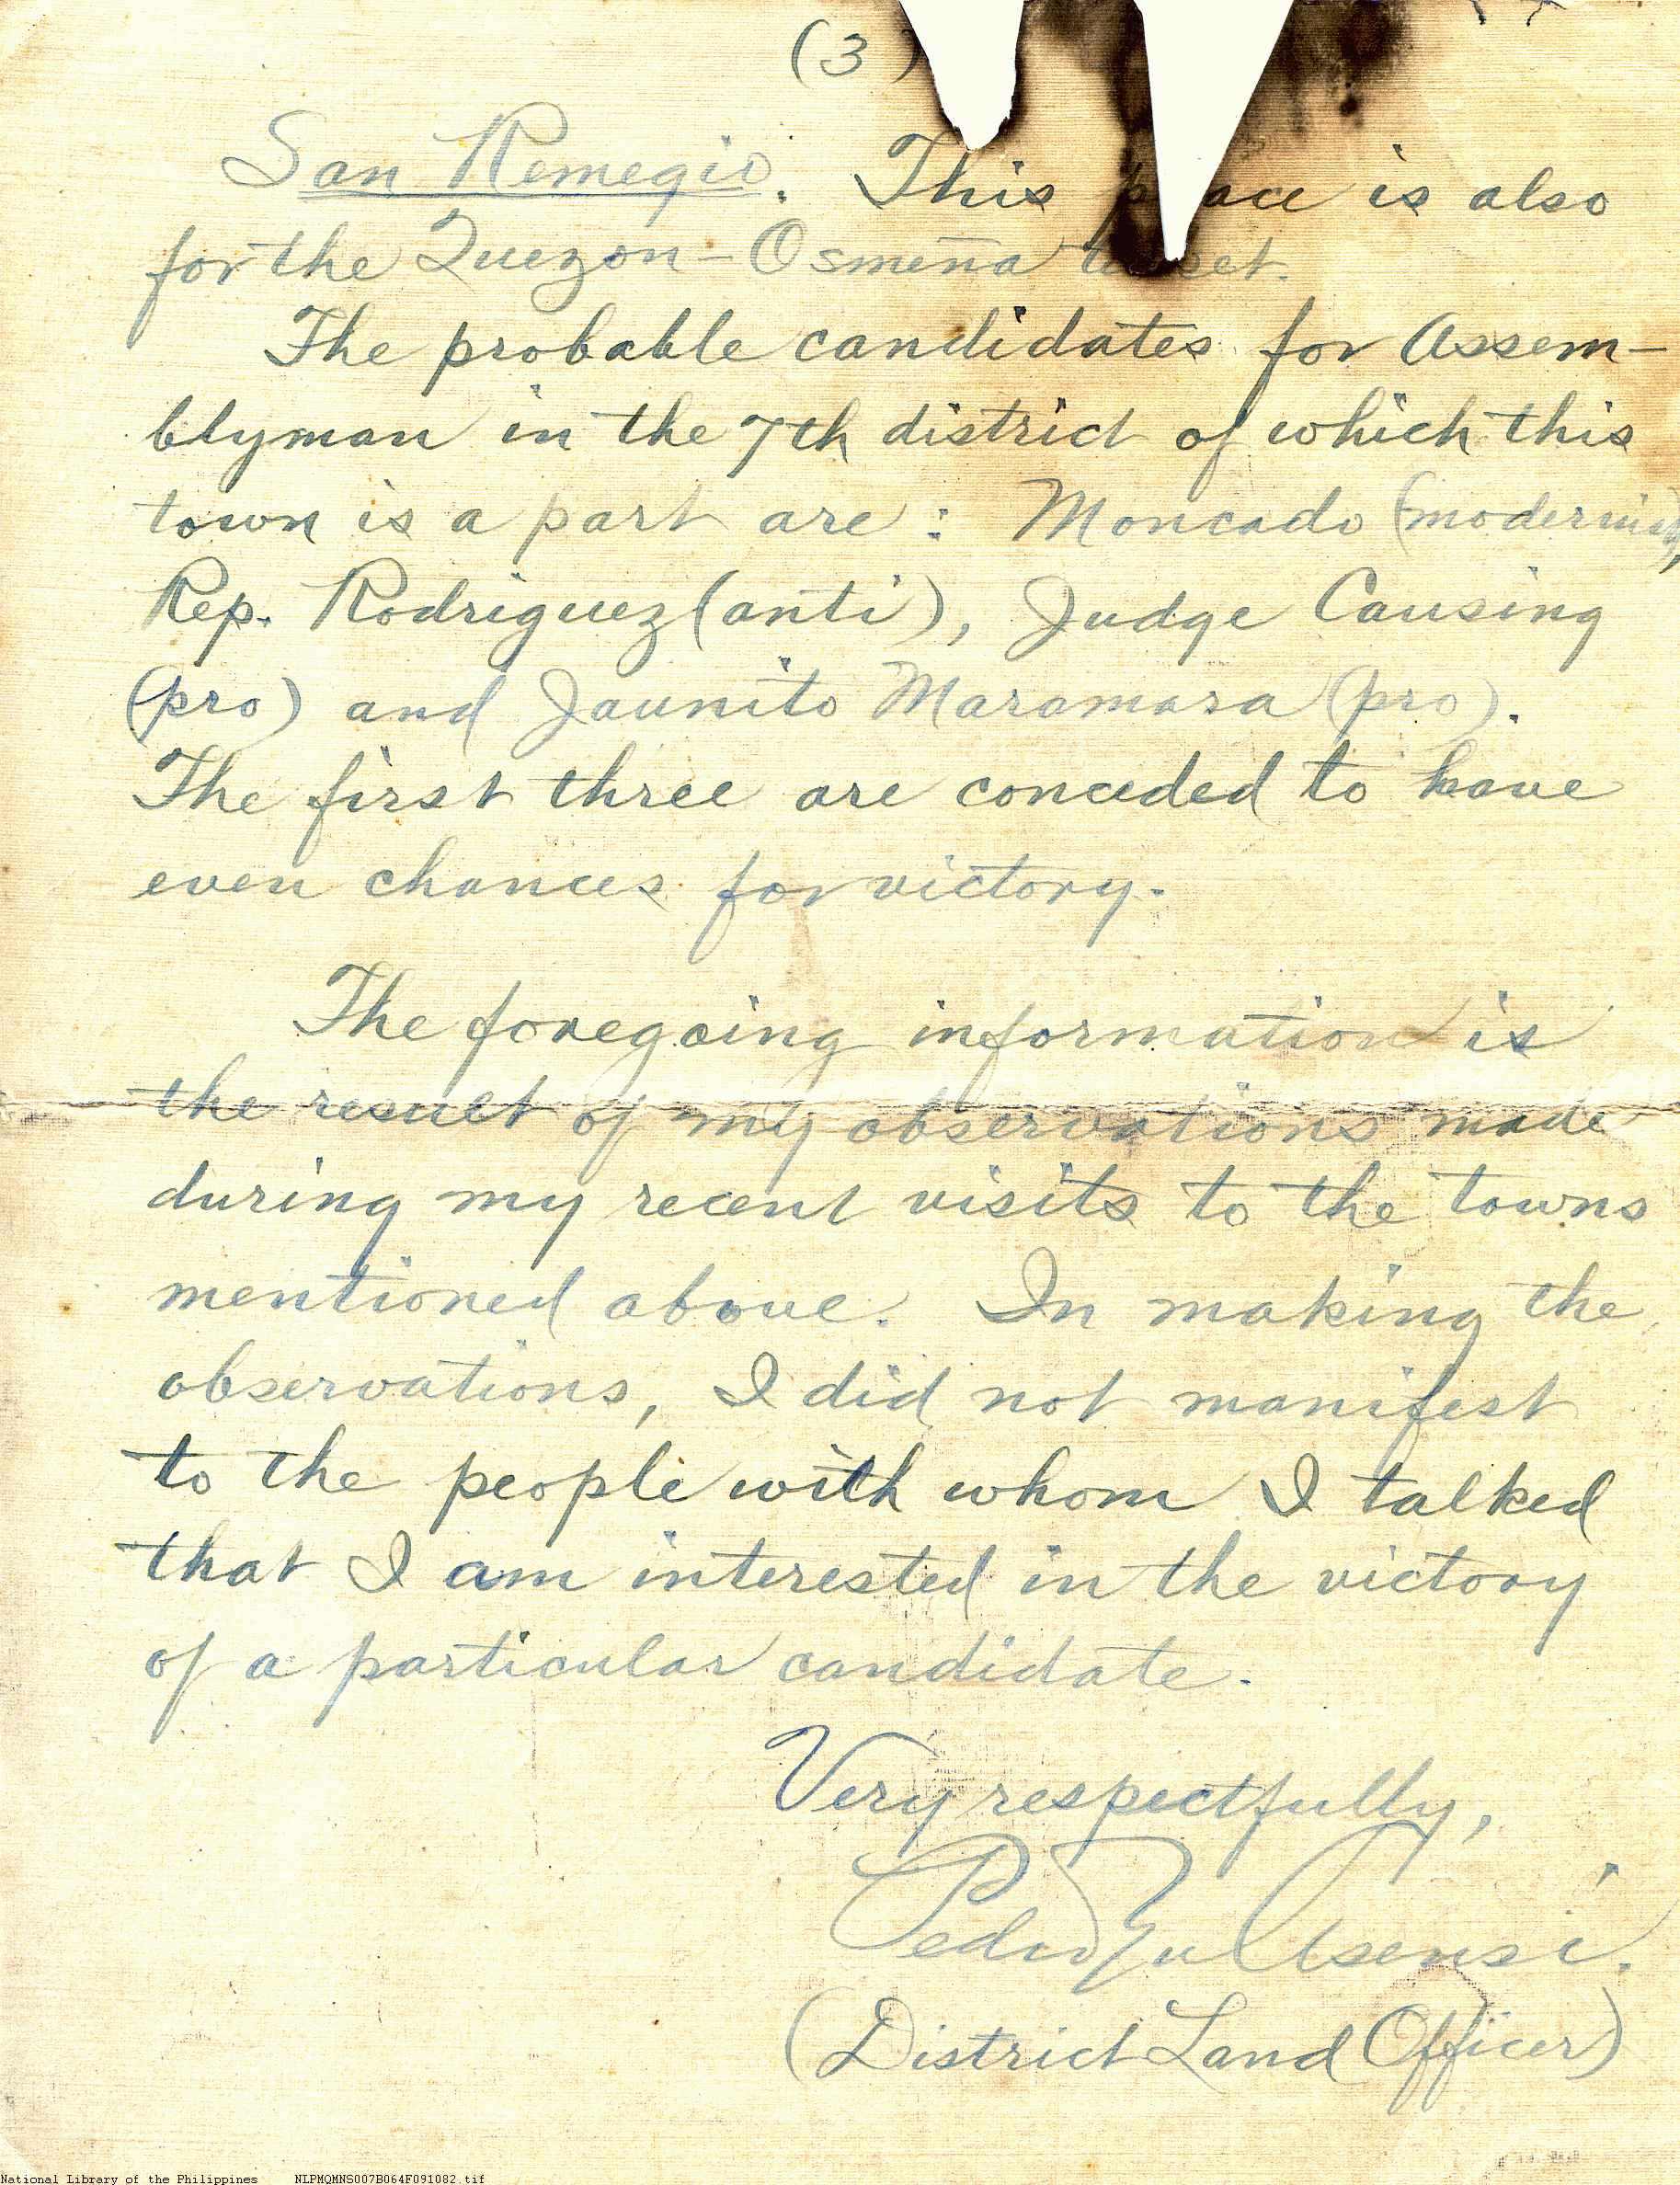 (3)
San Remegio. This place is also
for the Quezon-Osmeña ticket.
The probable candidates for Assem-
blyman in the 7th district of which this
town is a part are: Moncado (modernist),
Rep. Rodriguez (anti), Judge Causing
(pro) and Jaunito Maramara (pro).
The first three are conceded to have
even chances for victory.
The foregoing information is
the result of my observations made
during my recent visits to the towns
mentioned above. In making the
observations, I did not manifest
to the people with whom I talked
that I am interested in the victory
of a particular candidate.
Very respectfully,
Asensi.
(District Land Officer)
National Library of the Philippines NLPMQMNS007B064F091082.tif